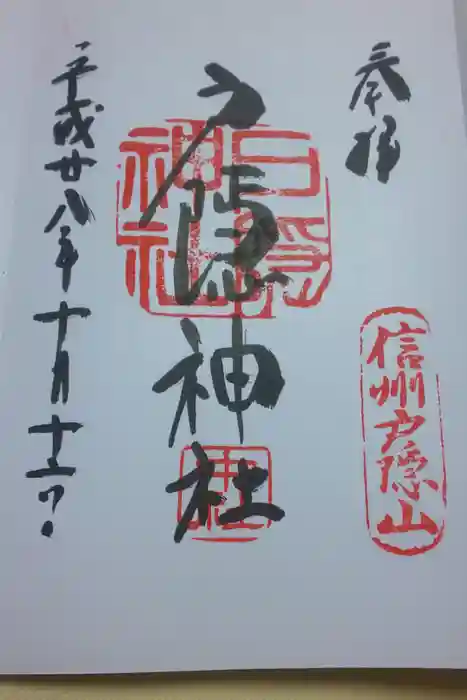 奉拝
信州戸隠山
戸隠神社
戸隠
神社
平成廿八年十月十五日